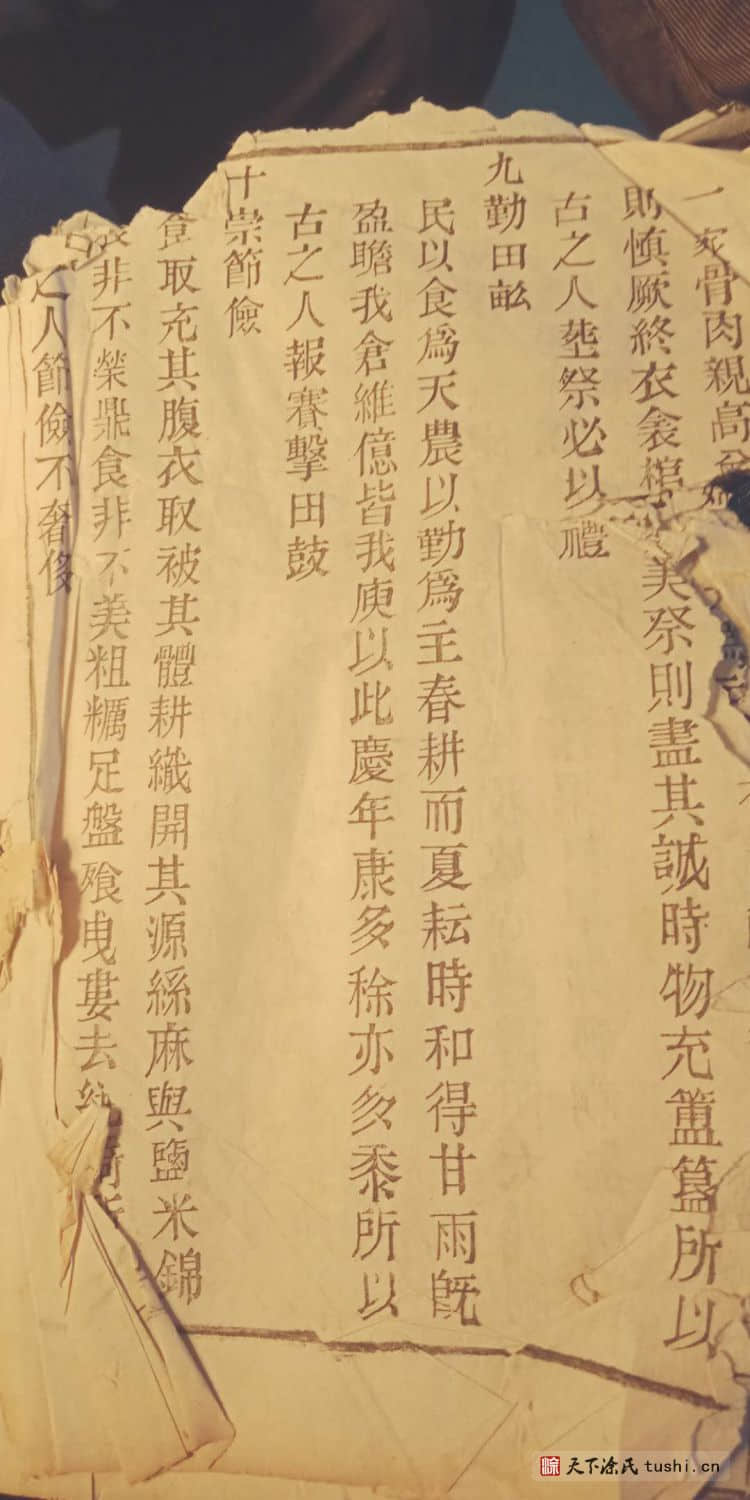 一家骨肉親高
則慎厥終衣衾棺美祭則盡其誠時物充簠簋所以
古之人塟祭必以禮
九勤田畝
民以食為天農以勤為主春耕而夏耘時和得甘雨既
盈瞻我倉維億皆我庾以此慶年康多稌亦多黍所以
古之人報賽擊田鼓
十崇節儉
食取充其腹衣取被其體耕織開其源絲麻與鹽米錦
非不榮鼎食非不美粗糲足盤飧曳婁去
之人節儉不奢侈
天下涂氏 tushi.cn